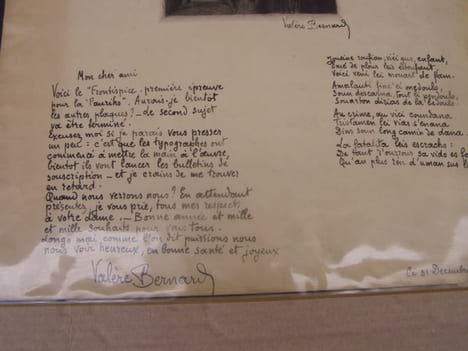 Valère Bernard
Mon cher ami
Voici le "Frontispice", première épreuve
pour la "Pauriho". Aurais-je bientôt
les autres plaques? — le second sujet
va être terminé.
Excusez moi si je parais vous presser
un peu: c'est que les typographes ont
commencé à mettre la main à l'œuvre,
bientôt ils vont lancer les bulletins de
souscription — et je crains de me trouver
en retard.
Quand nous verrons nous? En attendant
présentez, je vous prie, tous mes respects
à votre Dame. — Bonne année et mille
et mille souhaits pour vous tous.
Longo mai comme l'on dit puissions nous
nous voir heureux, en bonne santé et joyeux
Valère Bernard
enfant,
de plours
Voici veni lei mouart de fam.
Au crime, au vici coundana
Tristamen lei vias s'enana
Sins soun long camin de dana
La fatalita leis escracho:
De tant d'ourrour sa vido es
Qu'an plus ren d'uman sus
Ce 31 Décembre